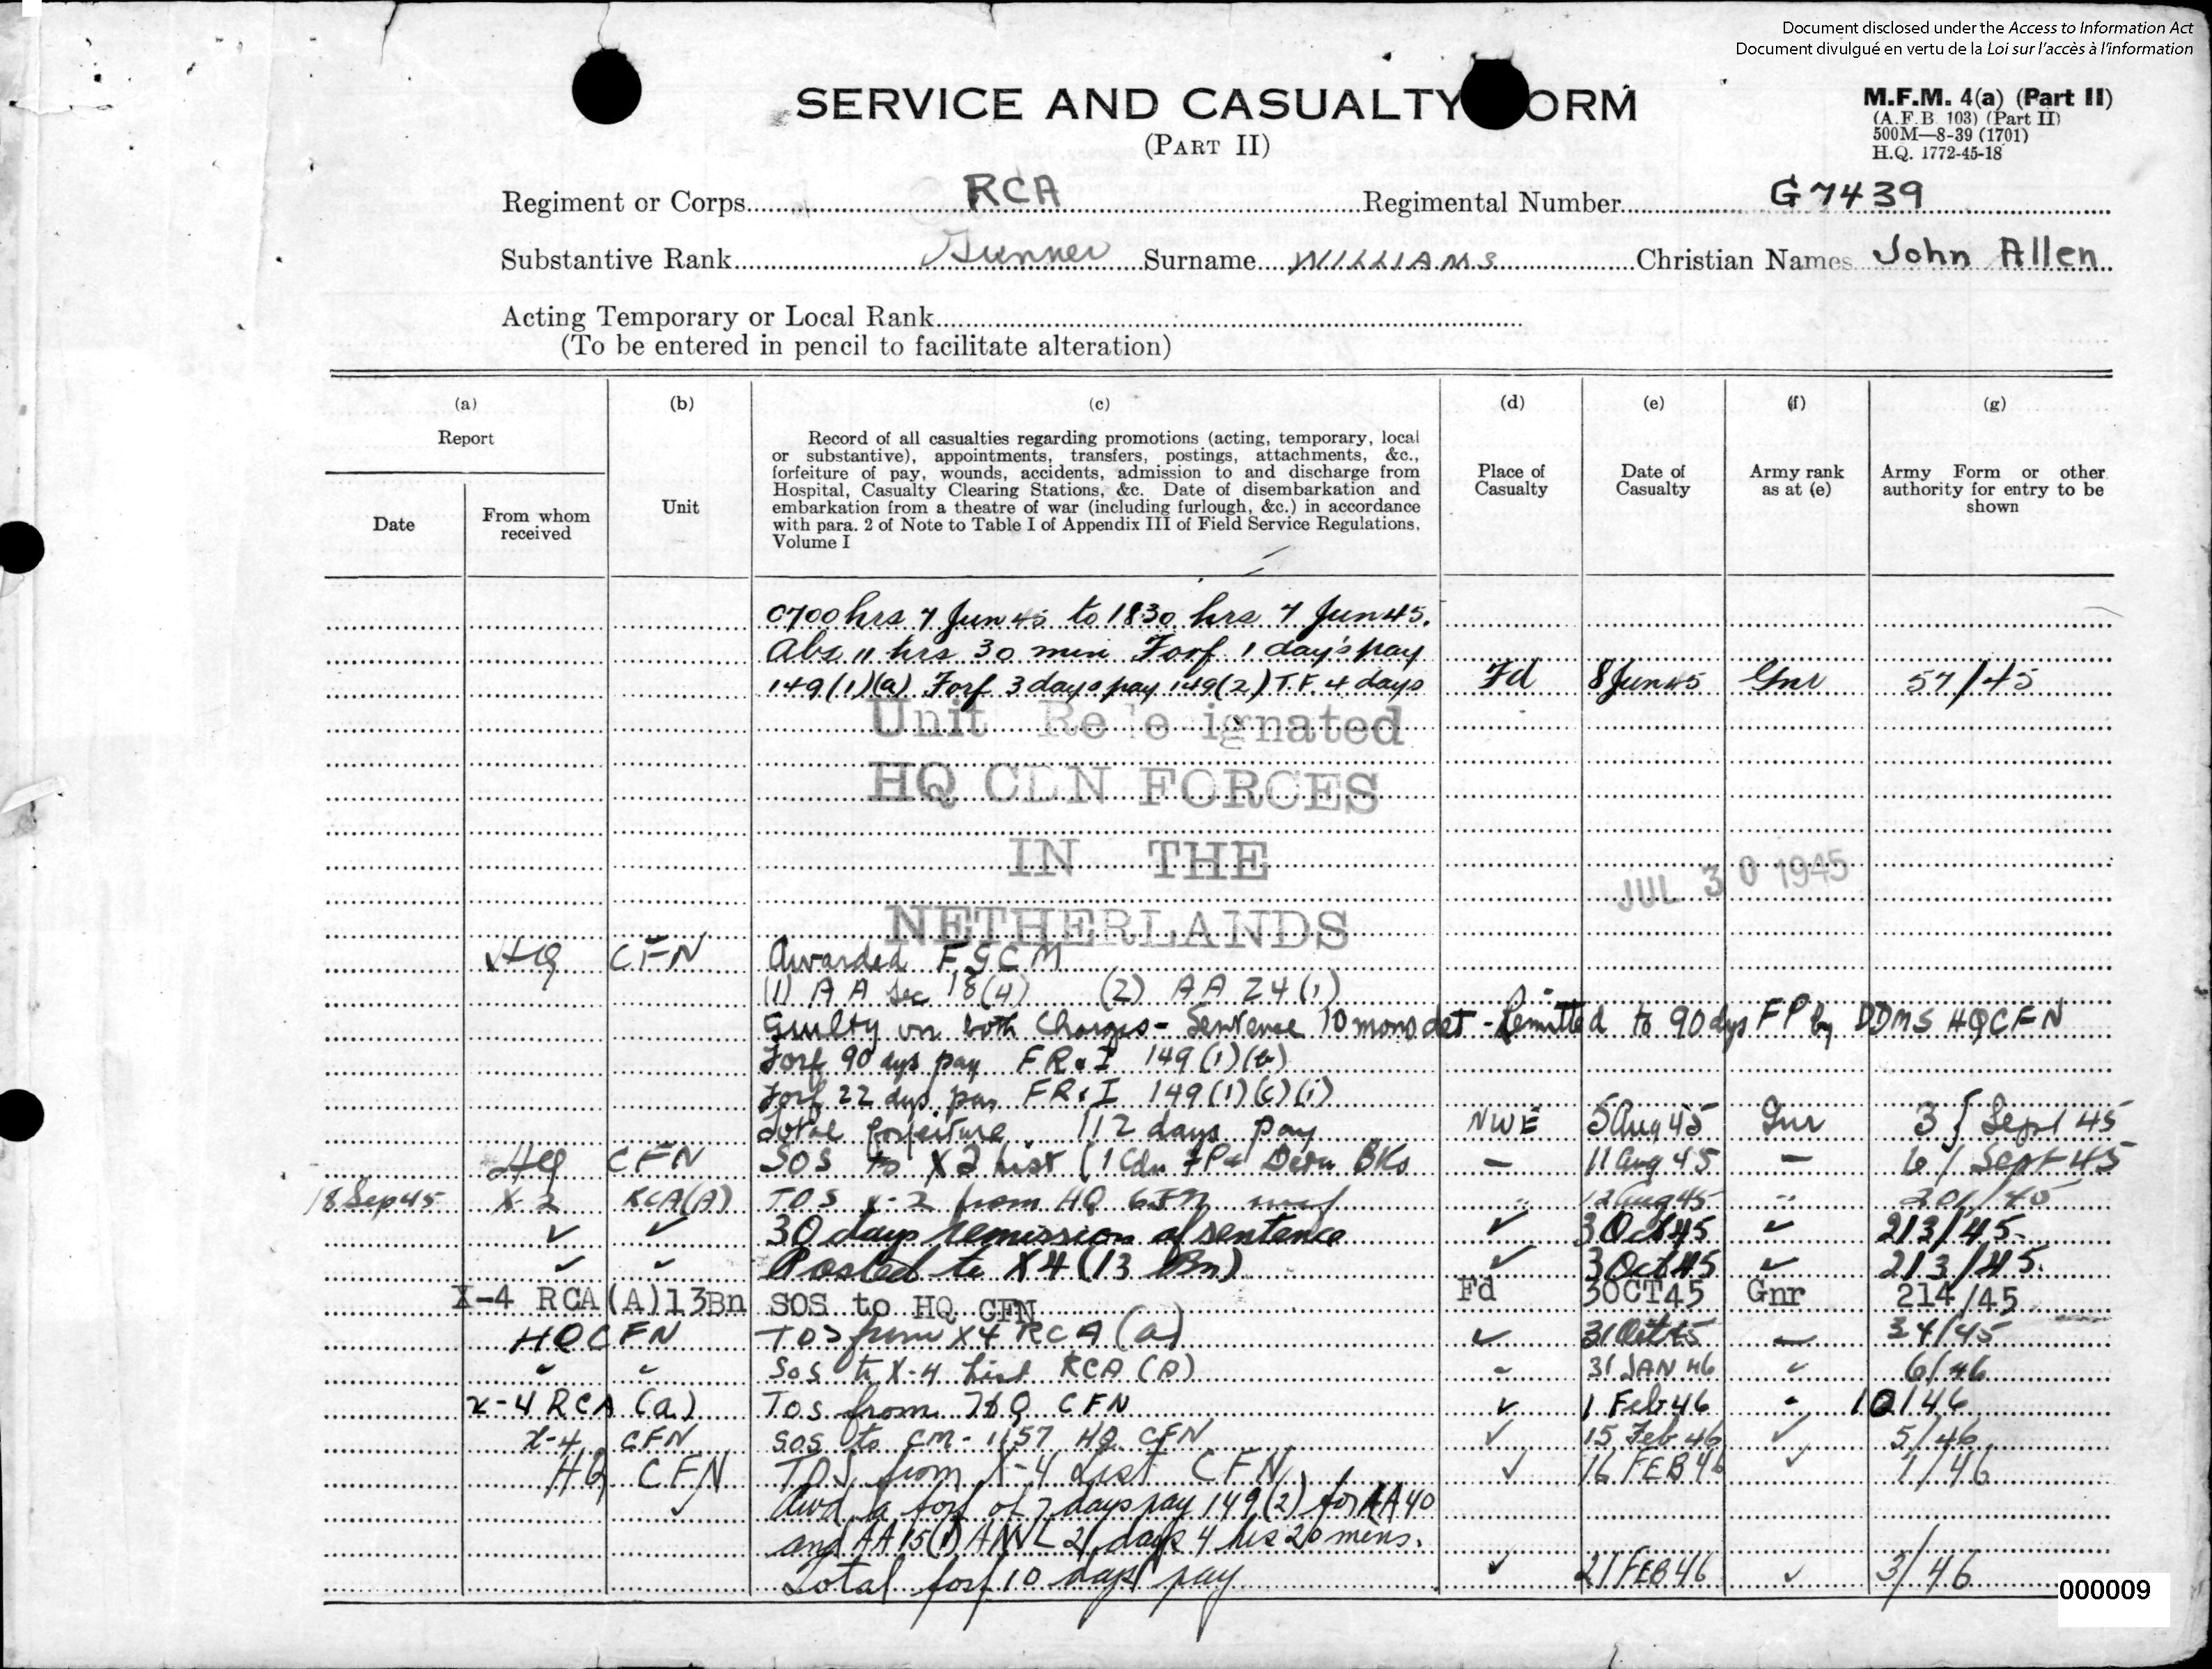 Document disclosed under the Access to Information Act
Document divulgué en vertu de la Loi sur l'accès à l'information
SERVICE AND CASUALTY ORM
(PART II)
M.F.M. 4(a) (Part II)
(A.F.B. 103) (Part II)
500M—8-39 (1701)
H.Q. 1772-45-18
Regiment or Corps RCA Regimental Number G7439
Substantive Rank Gunner Surname WILLIAMS Christian Names John Allen
Acting Temporary or Local Rank
(To be entered in pencil to facilitate alteration)
(a)
Report
Date
From whom
received
(b)
Unit
(c)
Record of all casualties regarding promotions (acting, temporary, local
or substantive), appointments, transfers, postings, attachments, &c.,
forfeiture of pay, wounds, accidents, admission to and discharge from
Hospital, Casualty Clearing Stations, &c. Date of disembarkation and
embarkation from a theatre of war (including furlough, &c.) in accordance
with para. 2 of Note to Table I of Appendix III of Field Service Regulations,
Volume I
(d)
Place of
Casualty
(e)
Date of
Casualty
(f)
Army rank
as at (e)
(g)
Army Form or other
authority for entry to be
shown
0700 hrs 7 Jun 45 to 1830 hrs 7 Jun 45.
Abs 11 hrs 30 min Forf 1 day's pay
149(1)(a) Forf 3 days pay 149(2) T.F. 4 days Fd 8 Jun 45 Gnr 57/45
Unit Re e ignated
HQ CDN FORCES
IN THE
JUL 30 1945
NETHERLANDS
HQ CFN Awarded FGCM
(1) AA Sec 18(4) (2) AA 24(1)
Guilty on both Charges - Sentence 10 mons det - Remitted to 90 dys FP by DDMS HQCFN
Forf 90 dys pay FR&I 149(1)(b)
Forf 22 dys pay FR&I 149(1)(c)(i)
Total forfeiture 112 days pay NWE 5 Aug 45 Gnr 3/Sept 45
HQ CFN SOS to X2 List (1 Cdn FP& Detn BKs - 11 Aug 45 - 6/Sept 45
18 Sep 45 X-2 RCA(A) TOS X-2 from HQ CFN 12 Aug 45
30 days remission of sentence 3 Oct 45 213/45
Posted to X4 (13 Bn) 3 Oct 45 213/45.
X-4 RCA(A)13Bn SOS to HQ CFN Fd 30OCT45 Gnr 214/45
HQ CFN TOS from X4 RCA (a) 31 Oct 45 34/45
SOS to X-4 List RCA (A) 31 JAN 46 6/46
X-4 RCA (a) TOS from HQ CFN 1 Feb 46 10/46
X-4 CFN SOS to CM-1157 HQ CFN 15 Feb 46 5/46
HQ CFN TOS from X-4 List CFN 16 FEB 46 1/46
Awd a forf of 7 days pay 149(2) for AA40
and AA 15(1) AWL 2 days 4 hrs 20 mins.
Total forf 10 days pay 21 FEB 46 3/46
000009